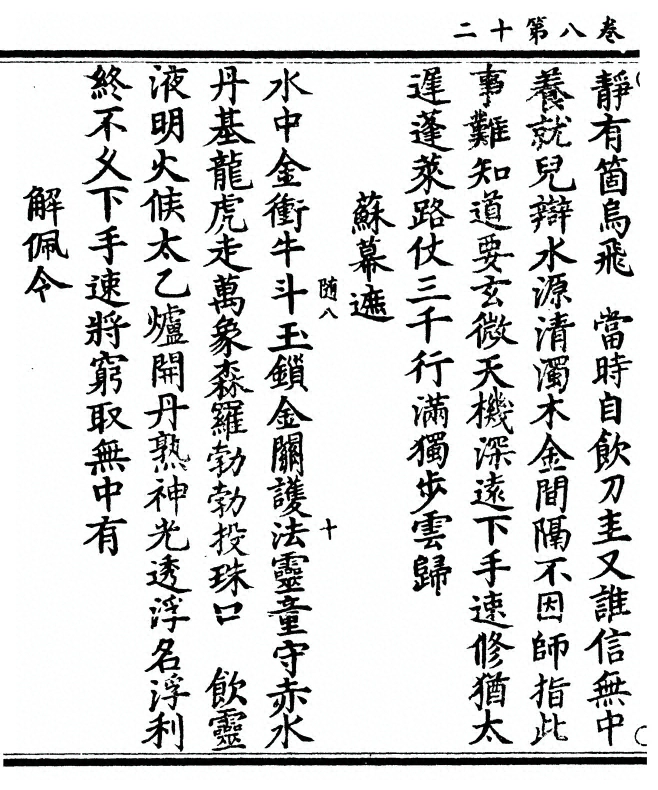 卷八第十二
靜有箇烏飛　當時自飲刀圭又誰信無中
養就兒辯水源清濁木金間隔不因師指此
事難知道要玄微天機深遠下手速修猶太
遲蓬萊路仗三千行滿獨步雲歸
蘇幕遮
隨八　十
水中金衝牛斗玉鎖金關護法靈童守赤水
丹基龍虎走萬象森羅勃勃投珠口　飲靈
液明火候太乙爐開丹熟神光透浮名浮利
終不乆下手速將窮取無中有
解佩令